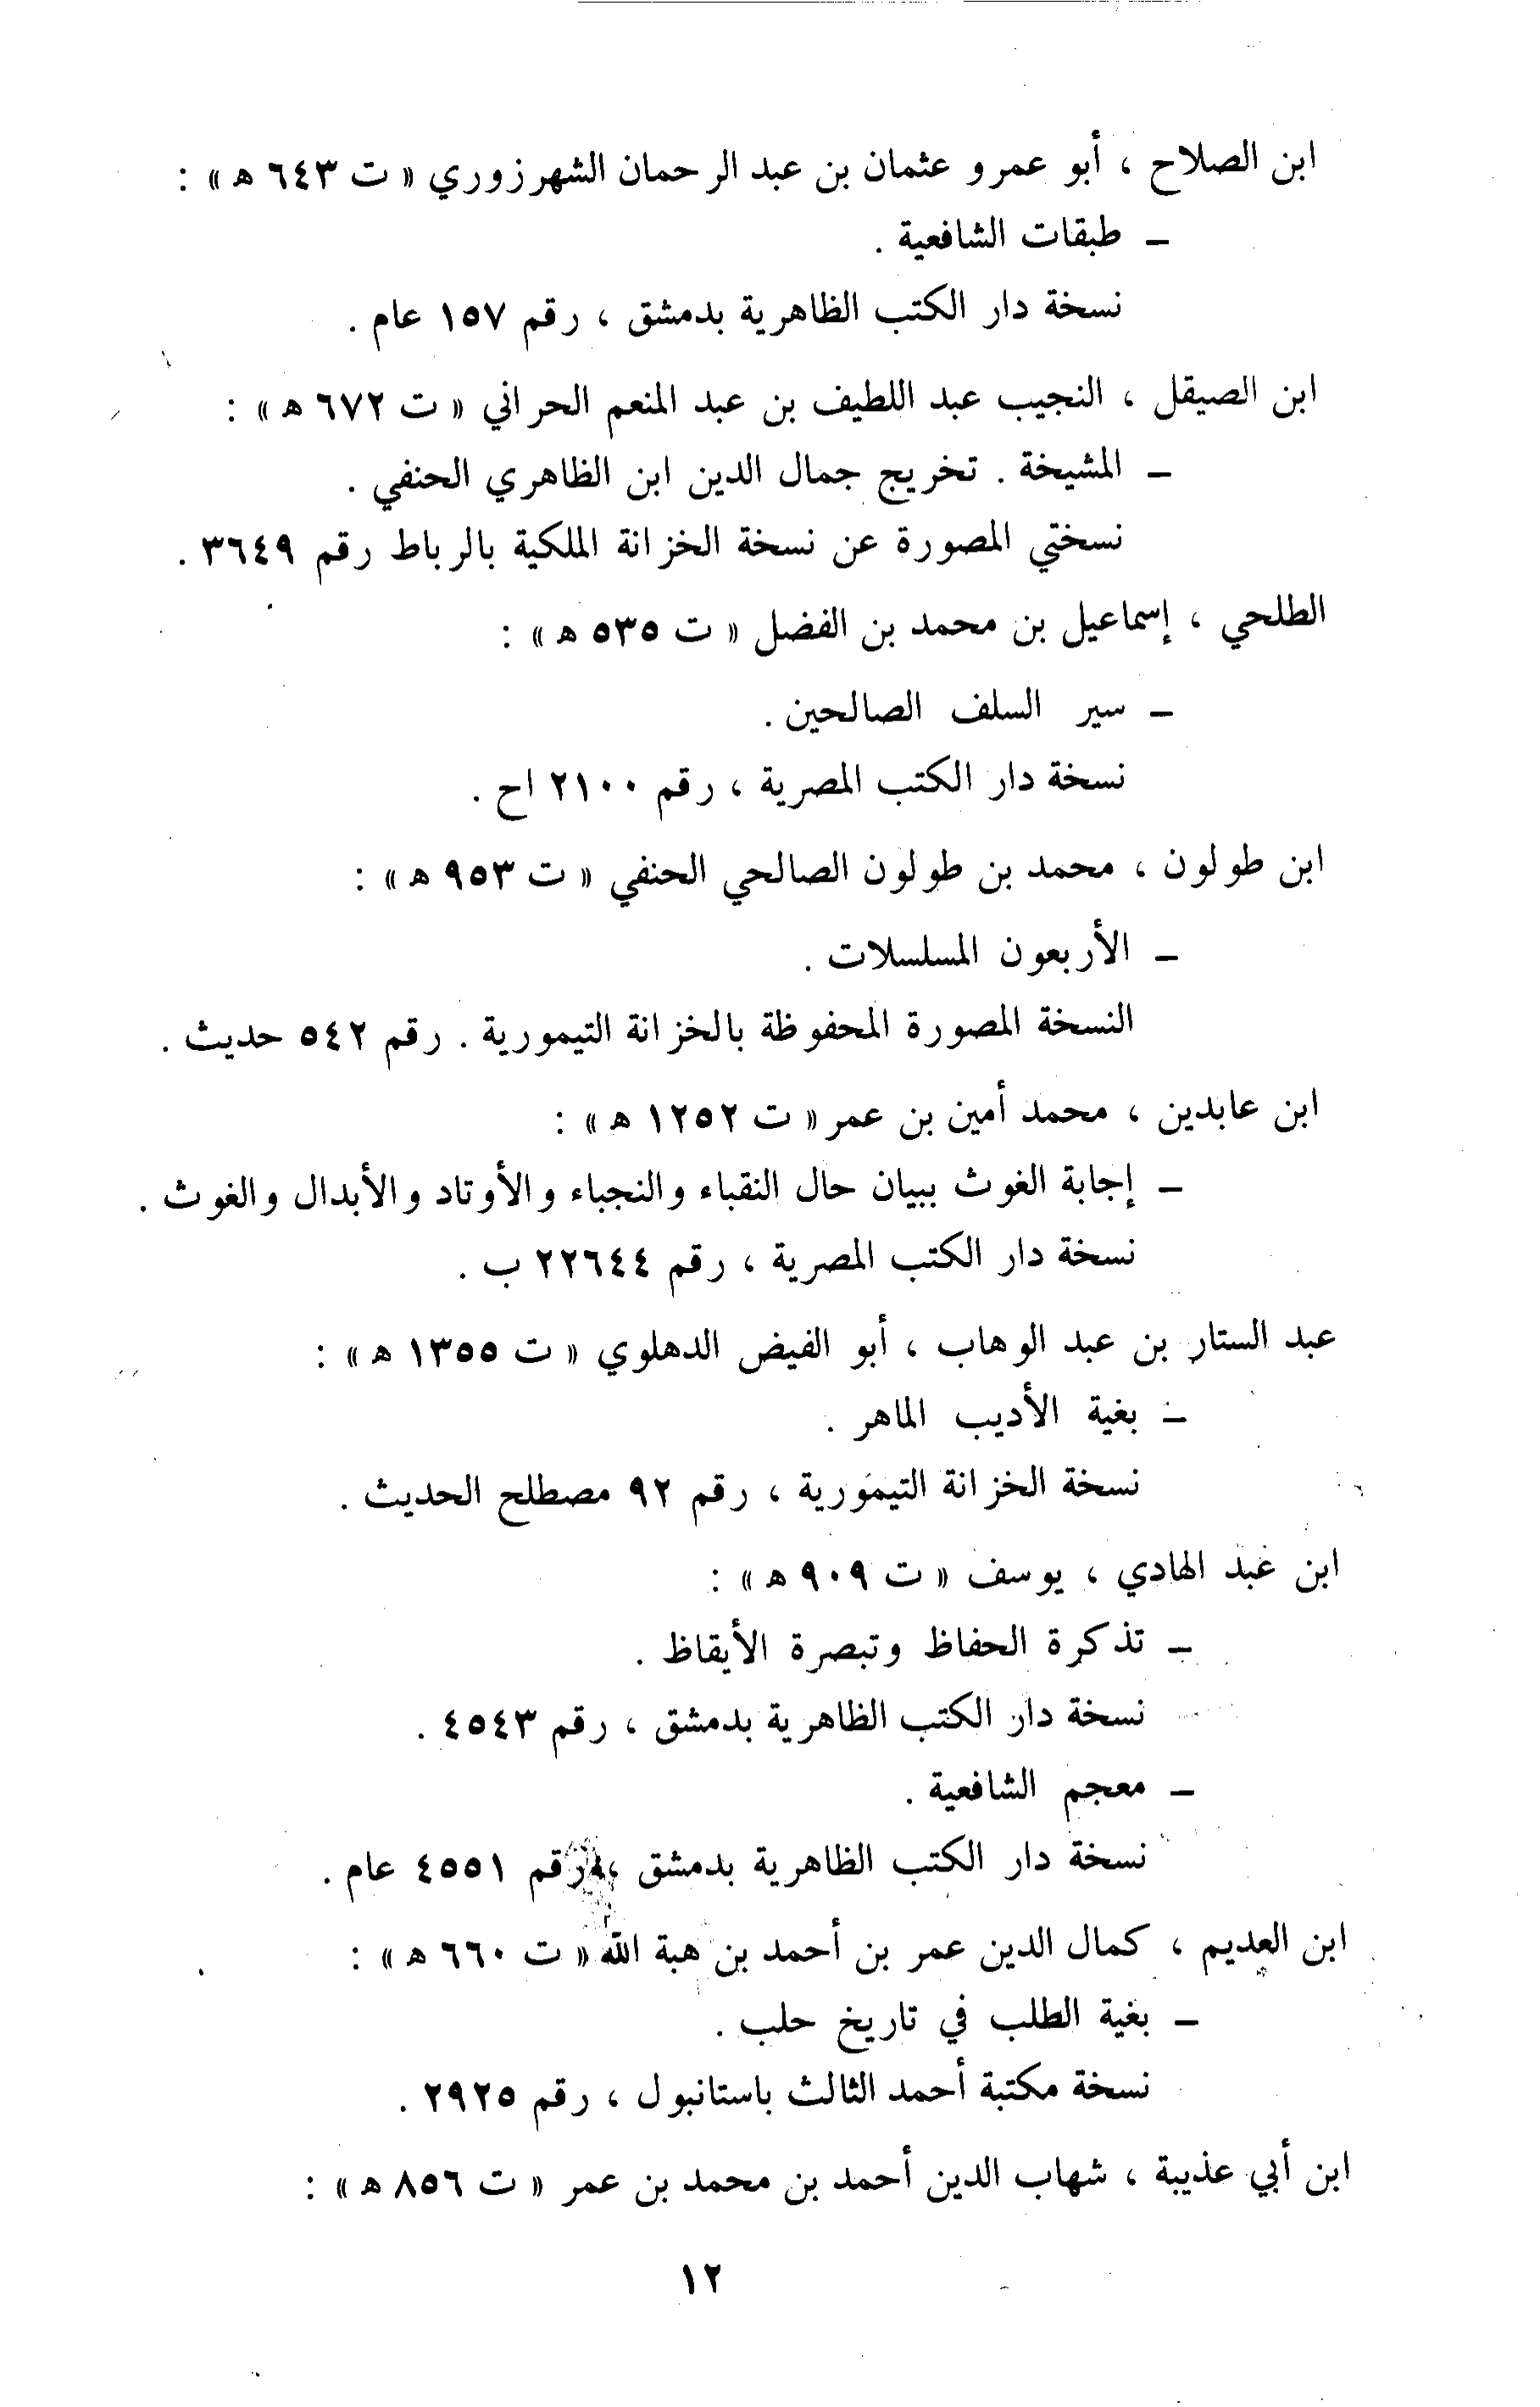 ابن الصلاح ، أبو عمرو عثمان بن عبد الرحمان الشهرزوري « ت ٦٤٣ ه » :
ـ طبقات الشافعية .
نسخة دار الكتب الظاهرية بدمشق ، رقم ١٥٧ عام .
ابن الصيقل ، النجيب عبد اللطيف بن عبد المنعم الحراني « ت ٦٧٢ ه » :
ـ المشيخة . تخريج جمال الدين ابن الظاهري الحنفي .
نسختي المصورة عن نسخة الخزانة الملكية بالرباط رقم ٣٦٤٩ .
الطلحي ، إسماعيل بن محمد بن الفضل « ت ٥٣٥ ه » :
ـ سير السلف الصالحين .
نسخة دار الكتب المصرية ، رقم ٢١٠٠ اح .
ابن طولون ، محمد بن طولون الصالحي الحنفي « ت ٩٥٣ ه » :
ـ الأربعون المسلسلات .
النسخة المصورة المحفوظة بالخزانة التيمورية . رقم ٥٤٢ حديث .
ابن عابدين ، محمد أمين بن عمر « ت ١٢٥٢ ه » :
ـ إجابة الغوث ببيان حال النقباء والنجباء والأوتاد والأبدال والغوث .
نسخة دار الكتب المصرية ، رقم ٢٢٦٤٤ ب .
عبد الستار بن عبد الوهاب ، أبو الفيض الدهلوي « ت ١٣٥٥ ه » :
ـ بغية الأديب الماهر .
نسخة الخزانة التيمورية ، رقم ٩٢ مصطلح الحديث .
ابن عبد الهادي ، يوسف « ت ٩٠٩ ه » :
ـ تذكرة الحفاظ وتبصرة الأيقاظ .
نسخة دار الكتب الظاهرية بدمشق ، رقم ٤٥٤٣ .
ـ معجم الشافعية .
نسخة دار الكتب الظاهرية بدمشق ، رقم ٤٥٥١ عام .
ابن العديم ، كمال الدين عمر بن أحمد بن هبة الله « ت ٦٦٠ ه » :
ـ بغية الطلب في تاريخ حلب .
نسخة مكتبة أحمد الثالث باستانبول ، رقم ٢٩٢٥ .
ابن أبي عذيبة ، شهاب الدين أحمد بن محمد بن عمر « ت ٨٥٦ ه » :
١٢